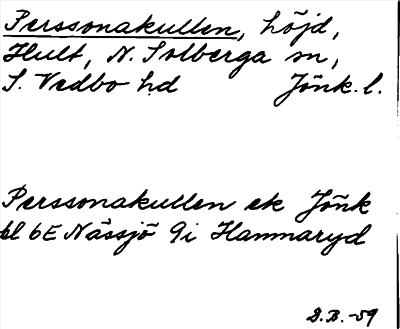 Perssonakullen, höjd,
Hult, N. Solberga sn,
S. Vedbo hd Jönk. l.
Perssonakullen ek Jönk
bl 6E Nässjö 9i Hammaryd
D.B. -59